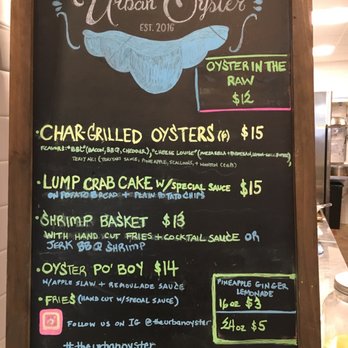 Urban Oyster
EST. 2016
OYSTER IN THE
RAW
$12
• CHAR-GRILLED OYSTERS (4) $15
FLAVORS: "BBL" (BACON, BBQ, CHEDDAR),
TERIYAKI (TERIYAKI SAUCE, PINEAPPLE, SCALLIONS, +
• LUMP CRAB CAKE W/SPECIAL SAUCE $15
ON POTATO BREAD + PLAIN POTATO CHIPS
• SHRIMP BASKET $13
WITH HAND CUT FRIES + COCKTAIL SAUCE OR
JERK BBQ SHRIMP
• OYSTER PO' BOY $14
W/APPLE SLAW + REMOULADE SAUCE
• FRIES (HAND CUT W/SPECIAL SAUCE)
PINEAPPLE GINGER
LEMONADE
16oz $3
24oz $5
FOLLOW US ON IG @theurbanoyster
#theurbanoyster